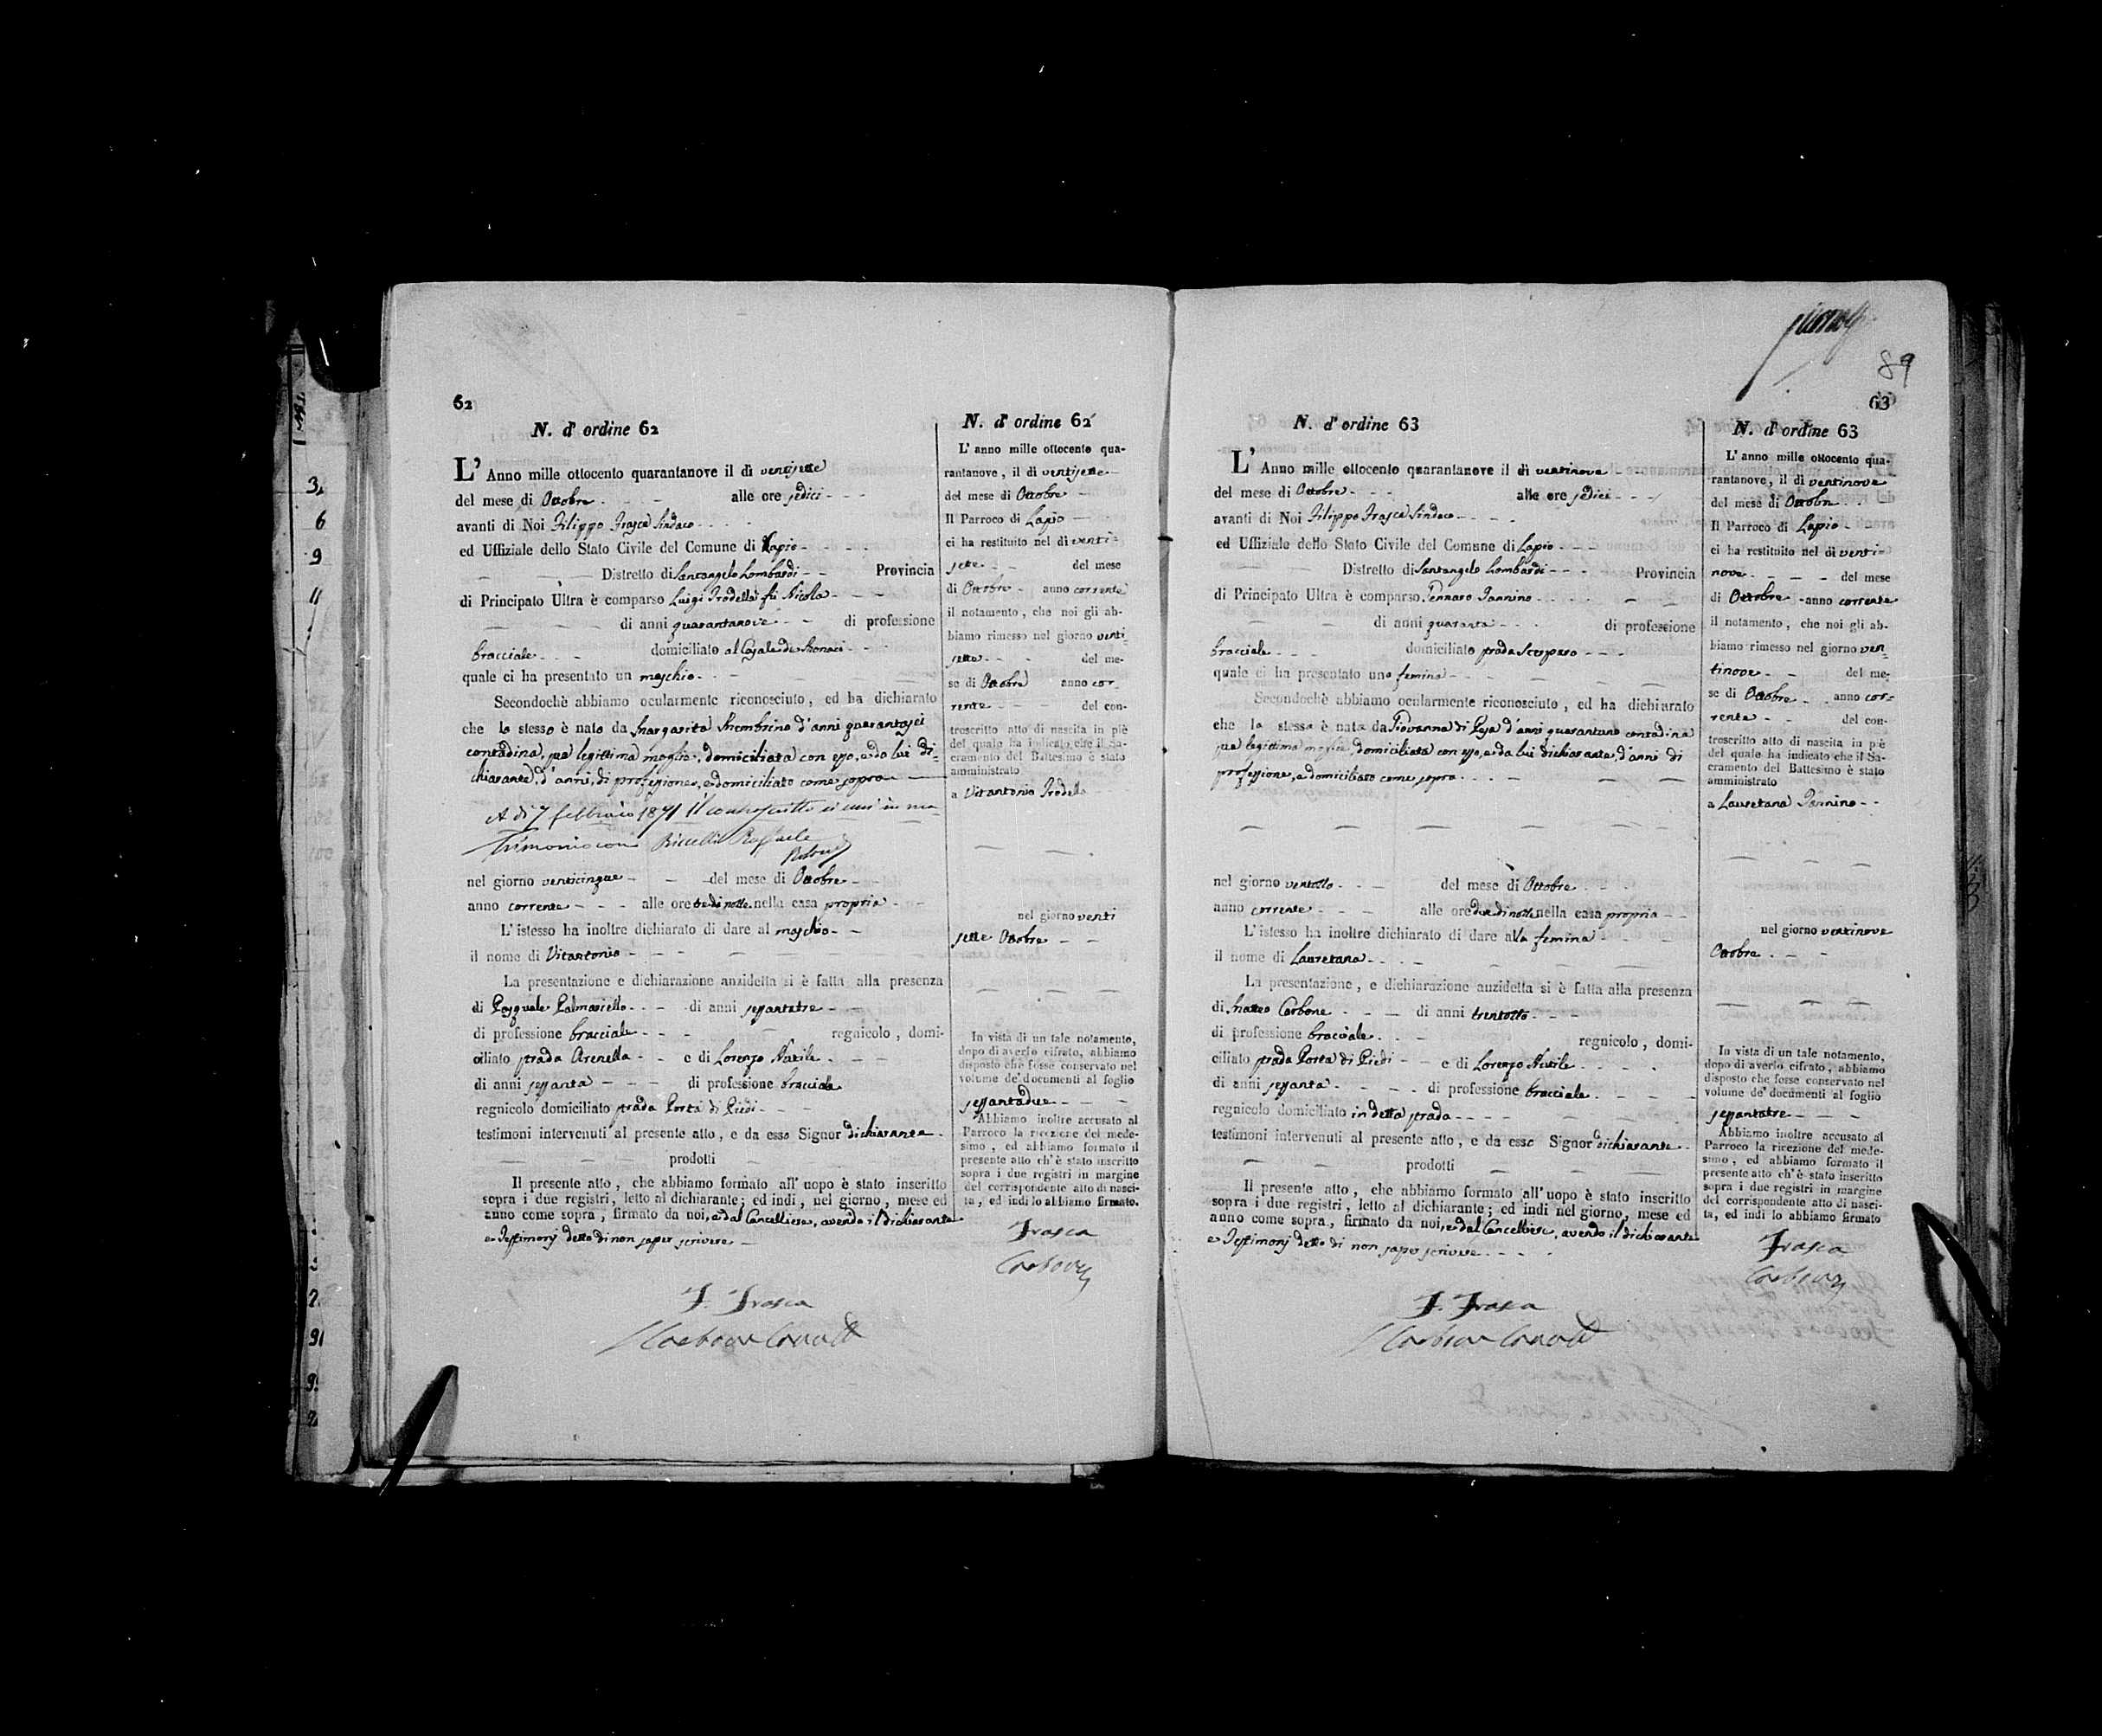 62
N. d' ordine 62
L' Anno mille ottocento quarantanove il dì ventisette
del mese di Ottobre alle ore sedici
avanti di Noi Filippo Frasca Sindaco
ed Uffiziale dello Stato Civile del Comune di Lapio
Distretto di Santangelo Lombardi Provincia
di Principato Ultra è comparso Luigi Trodella fu Nicola
di anni quarantanove di professione
bracciale domiciliato al Casale de
quale ci ha presentato un maschio
Secondochè abbiamo ocularmente riconosciuto, ed ha dichiarato
che lo stesso è nato da Margarita d'anni quarantasei
contadina, sua legittima moglie, domiciliata con esso, e da lui di-
chiarante, d'anni, di professione, e domiciliato come sopra
A dì 7 febbraio 1871 il controscritto si unì in ma
trimonio con Raffaele
nel giorno venticinque del mese di Ottobre
anno corrente alle ore tre di notte nella casa propria
L'istesso ha inoltre dichiarato di dare al maschio
il nome di Vitantonio
La presentazione e dichiarazione anzidetta si è fatta alla presenza
di Pasquale Palmariello di anni sessantatre
di professione bracciale regnicolo, domi-
ciliato strada Arenella e di Lorenzo Nutile
di anni sessanta di professione bracciale
regnicolo domiciliato strada Porta di Piedi
testimoni intervenuti al presente atto, e da esso Signor dichiarante
prodotti
Il presente atto, che abbiamo formato all' uopo è stato inscritto
sopra i due registri, letto al dichiarante; ed indi, nel giorno, mese ed
anno come sopra, firmato da noi, e dal Cancelliere, avendo il dichiarante
e Testimonj detto di non saper scrivere
F. Frasca
N. d' ordine 62
L' anno mille ottocento qua-
rantanove, il dì ventisette
del mese di Ottobre
Il Parroco di Lapio
ci ha restituito nel dì venti-
sette del mese
di Ottobre anno corrente
il notamento, che noi gli ab-
biamo rimesso nel giorno venti-
sette del me-
se di Ottobre anno cor-
rente del con-
troscritto atto di nascita in piè
del quale ha indicato, che il Sa-
cramento del Battesimo è stato
amministrato
a Vitantonio Trodella
nel giorno venti
sette Ottobre
In vista di un tale notamento,
dopo di averlo cifrato, abbiamo
disposto che fosse conservato nel
volume de' documenti al foglio
sessantadue
Abbiamo inoltre accusato al
Parroco la ricezione del mede-
simo, ed abbiamo formato il
presente atto ch' è stato inscritto
sopra i due registri in margine
del corrispondente atto di nasci-
ta, ed indi lo abbiamo firmato.
Frasca
Carbone
89
63
N. d' ordine 63
L' Anno mille ottocento quarantanove il dì ventinove
del mese di Ottobre alle ore sedici
avanti di Noi Filippo Frasca Sindaco
ed Uffiziale dello Stato Civile del Comune di Lapio
Distretto di Santangelo Lombardi Provincia
di Principato Ultra è comparso Gennaro Iannino
di anni quaranta di professione
bracciale domiciliato strada
quale ci ha presentato una femina
Secondochè abbiamo ocularmente riconosciuto, ed ha dichiarato
che la stessa è nata da Giovanna di d'anni quarantuno contadina
sua legittima moglie, domiciliata con esso, e da lui dichiarante, d'anni di
professione, e domiciliato come sopra
nel giorno ventotto del mese di Ottobre
anno corrente alle ore due di notte nella casa propria
L'istesso ha inoltre dichiarato di dare alla femina
il nome di Lauretana
La presentazione, e dichiarazione anzidetta si è fatta alla presenza
di Matteo Carbone di anni trentotto
di professione bracciale regnicolo, domi-
ciliato strada Porta di Piedi e di Lorenzo Nutile
di anni sessanta di professione bracciale
regnicolo domiciliato in detta strada
testimoni intervenuti al presente atto, e da esso Signor dichiarante
prodotti
Il presente atto, che abbiamo formato all' uopo è stato inscritto
sopra i due registri, letto al dichiarante; ed indi nel giorno, mese ed
anno come sopra, firmato da noi, e dal Cancelliere, avendo il dichiarante
e Testimonj detto di non saper scrivere
F. Frasca
N. d' ordine 63
L' anno mille ottocento qua-
rantanove, il dì ventinove
del mese di Ottobre
Il Parroco di Lapio
ci ha restituito nel dì venti-
nove del mese
di Ottobre anno corrente
il notamento, che noi gli ab-
biamo rimesso nel giorno ven-
tinove del me-
se di Ottobre anno cor-
rente del con-
troscritto atto di nascita in piè
del quale ha indicato che il Sa-
cramento del Battesimo è stato
amministrato
a Lauretana Iannino
nel giorno ventinove
Ottobre
In vista di un tale notamento,
dopo di averlo cifrato, abbiamo
disposto che fosse conservato nel
volume de' documenti al foglio
sessantatre
Abbiamo inoltre accusato al
Parroco la ricezione del mede-
simo, ed abbiamo formato il
presente atto ch'è stato inscritto
sopra i due registri in margine
del corrispondente atto di nasci-
ta, ed indi lo abbiamo firmato
Frasca
Carbone